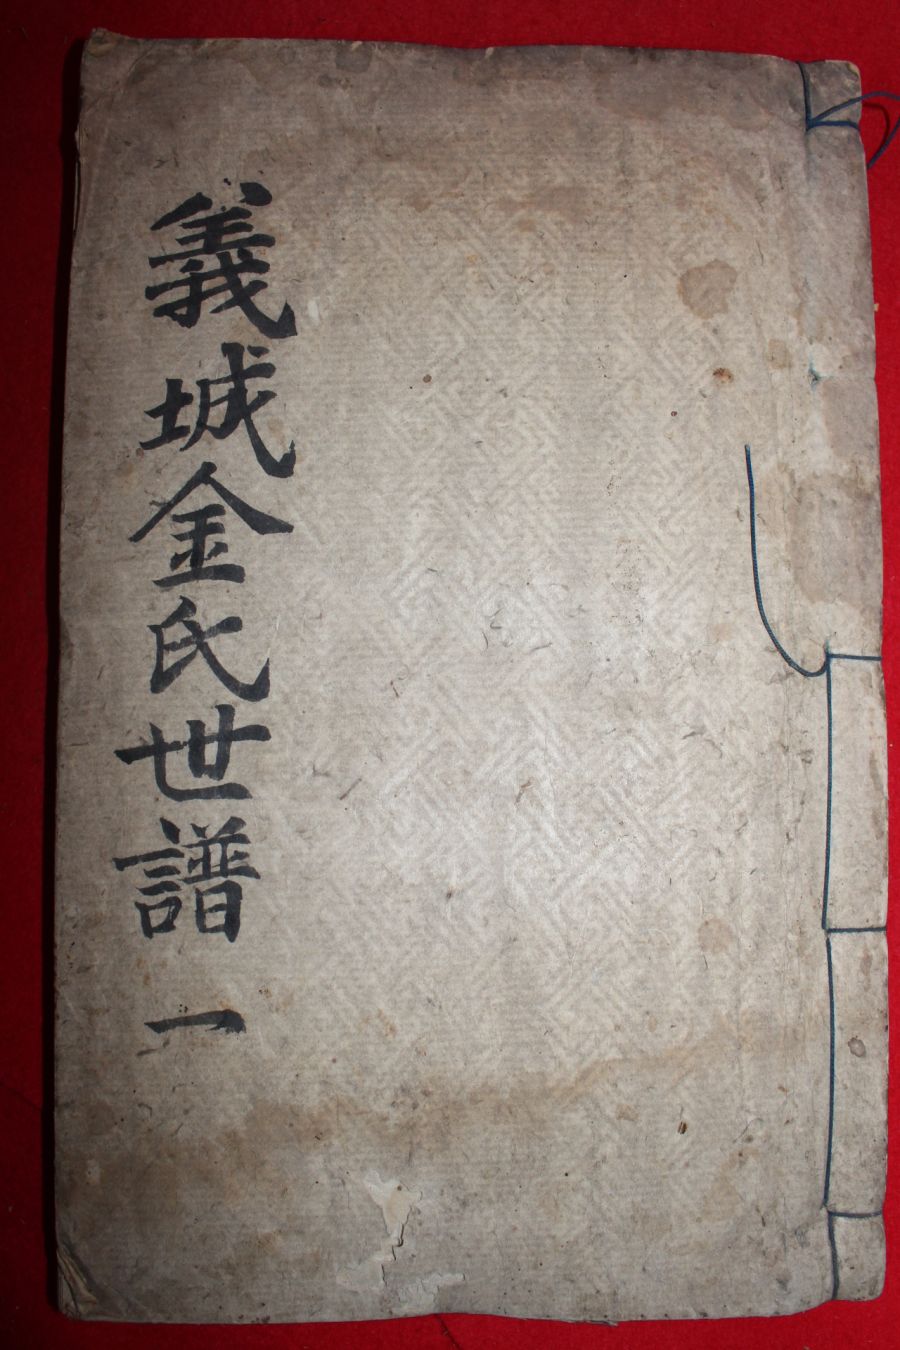 義城金氏世譜 一